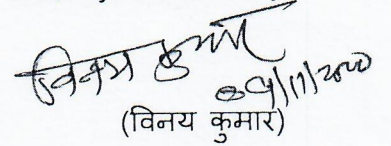 विनय कुमार
09/11/2020
(विनय कुमार)